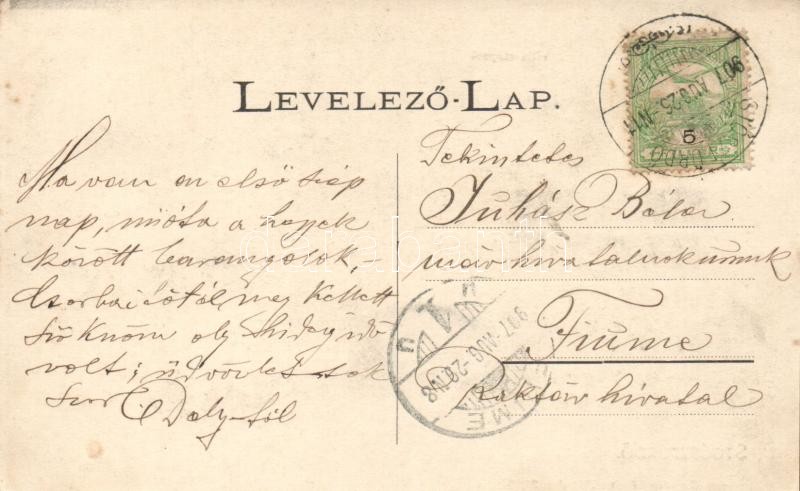 LEVELEZŐ-LAP.
Ma van az első szép
nap, mióta a hegyek
között barangolok, –
Csorbai tótól meg kellett
szöknöm oly hideg idő
volt; üdvözlettek
Daly-tól
Tekintetes
Juhász Béla
úrnak
Fiume
Raktár hivatal
5
907 AUG. 25.
907 AUG. 26.
FIUME
darabanth